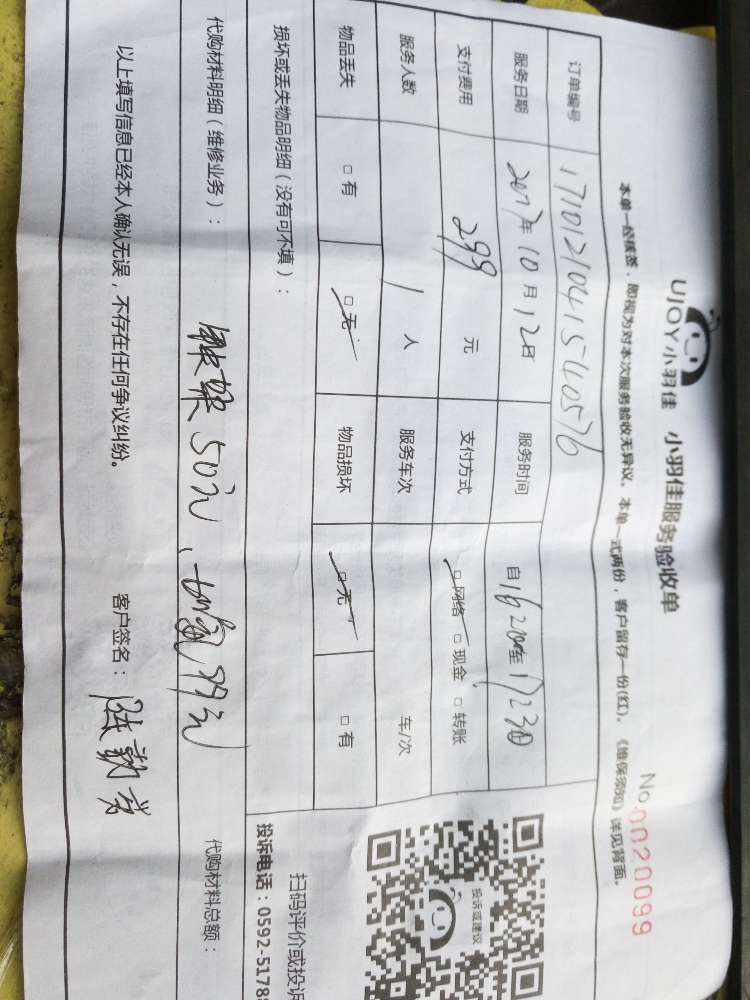 UJOY小羽佳 小羽佳服务验收单
No.0020099
本单一经核签，即视为对本次服务验收无异议。本单一式两份，客户留存一份(红)。《维保须知》详见背面。
订单编号 1710121041540576
服务日期 2017年10月12日 服务时间 自16:20至17:30
支付费用 299 元 支付方式 □网络 □现金 □转账
服务人数 1 人 服务车次 车/次
物品丢失 □有 □无 物品损坏 □无 □有
损坏或丢失物品明细（没有可不填）：
代购材料明细（维修业务）： 50元、加氟 代购材料总额：
以上填写信息已经本人确认无误，不存在任何争议纠纷。 客户签名：
投诉或建议
扫码评价或投诉
投诉电话：0592-5178